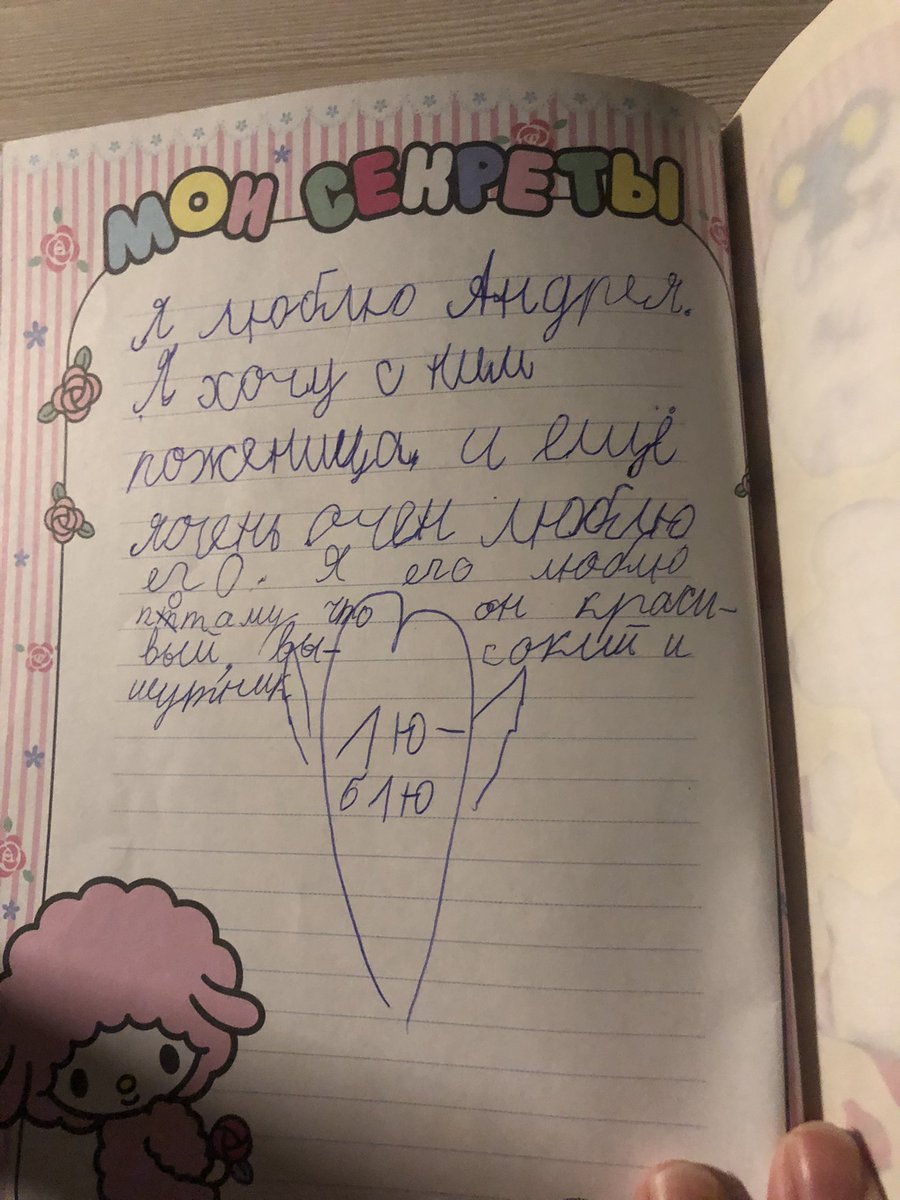 МОИ СЕКРЕТЫ
Я люблю Андрея.
Я хочу с ним
поженица, и ещё
яочень очен люблю
его. Я его люблю
потаму что он краси-
вый, вы- сокий и
шутник
Лю-
блю